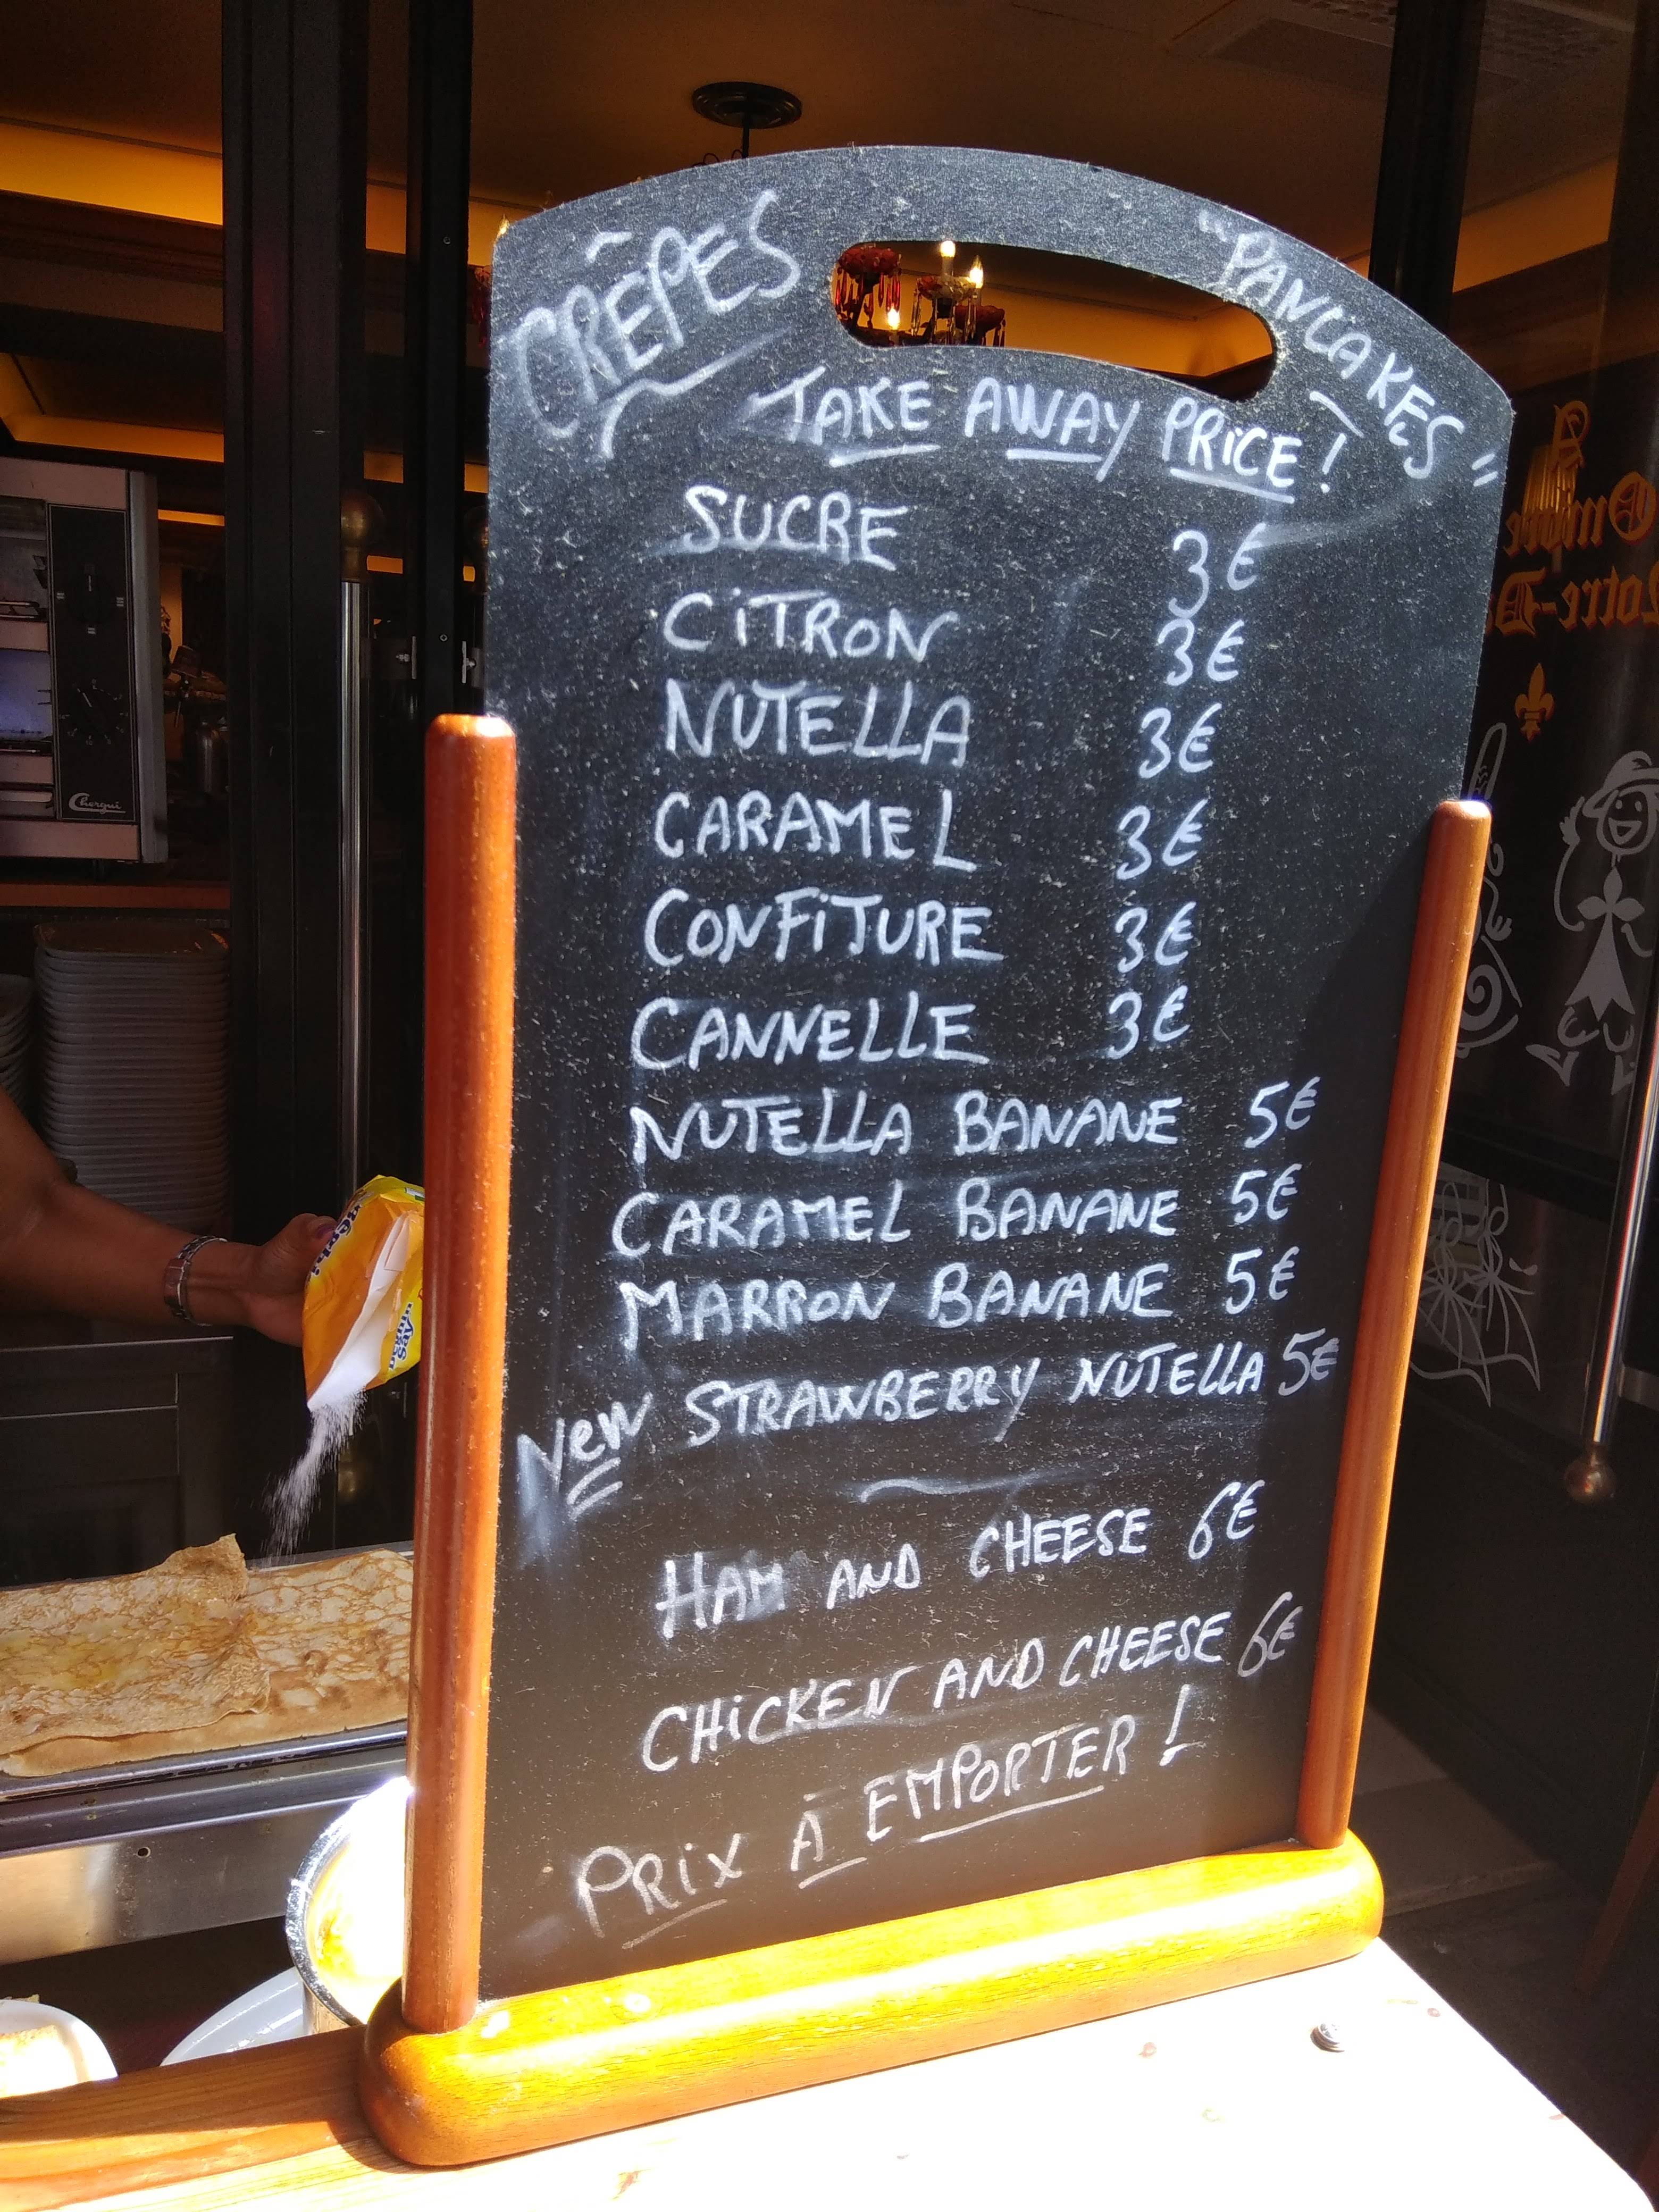 CRÊPES
"PANCAKES"
TAKE AWAY PRICE!
SUCRE 3€
CITRON 3€
NUTELLA 3€
CARAMEL 3€
CONFITURE 3€
CANNELLE 3€
NUTELLA BANANE 5€
CARAMEL BANANE 5€
MARRON BANANE 5€
NEW STRAWBERRY NUTELLA 5€
HAM AND CHEESE 6€
CHICKEN AND CHEESE 6€
PRIX À EMPORTER !
Chergui